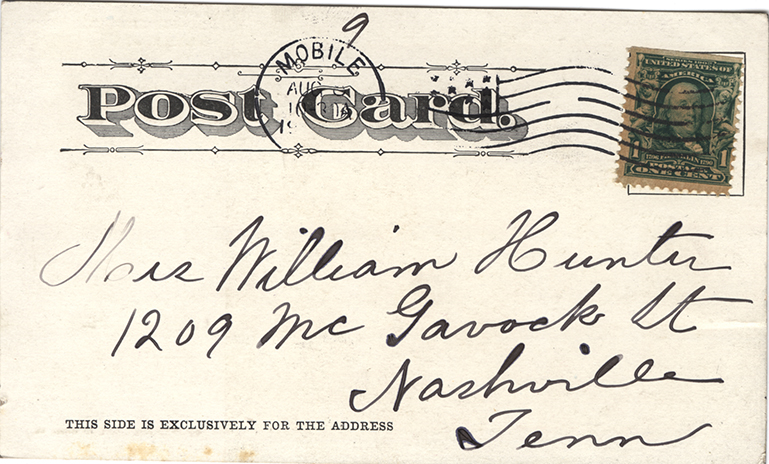 9
MOBILE
AUG
Post Card.
UNITED STATES OF
AMERICA
1 FRANKLIN 1
POSTAGE
ONE CENT
Mrs William Hunter
1209 Mc Gavock St
Nashville
Tenn
THIS SIDE IS EXCLUSIVELY FOR THE ADDRESS